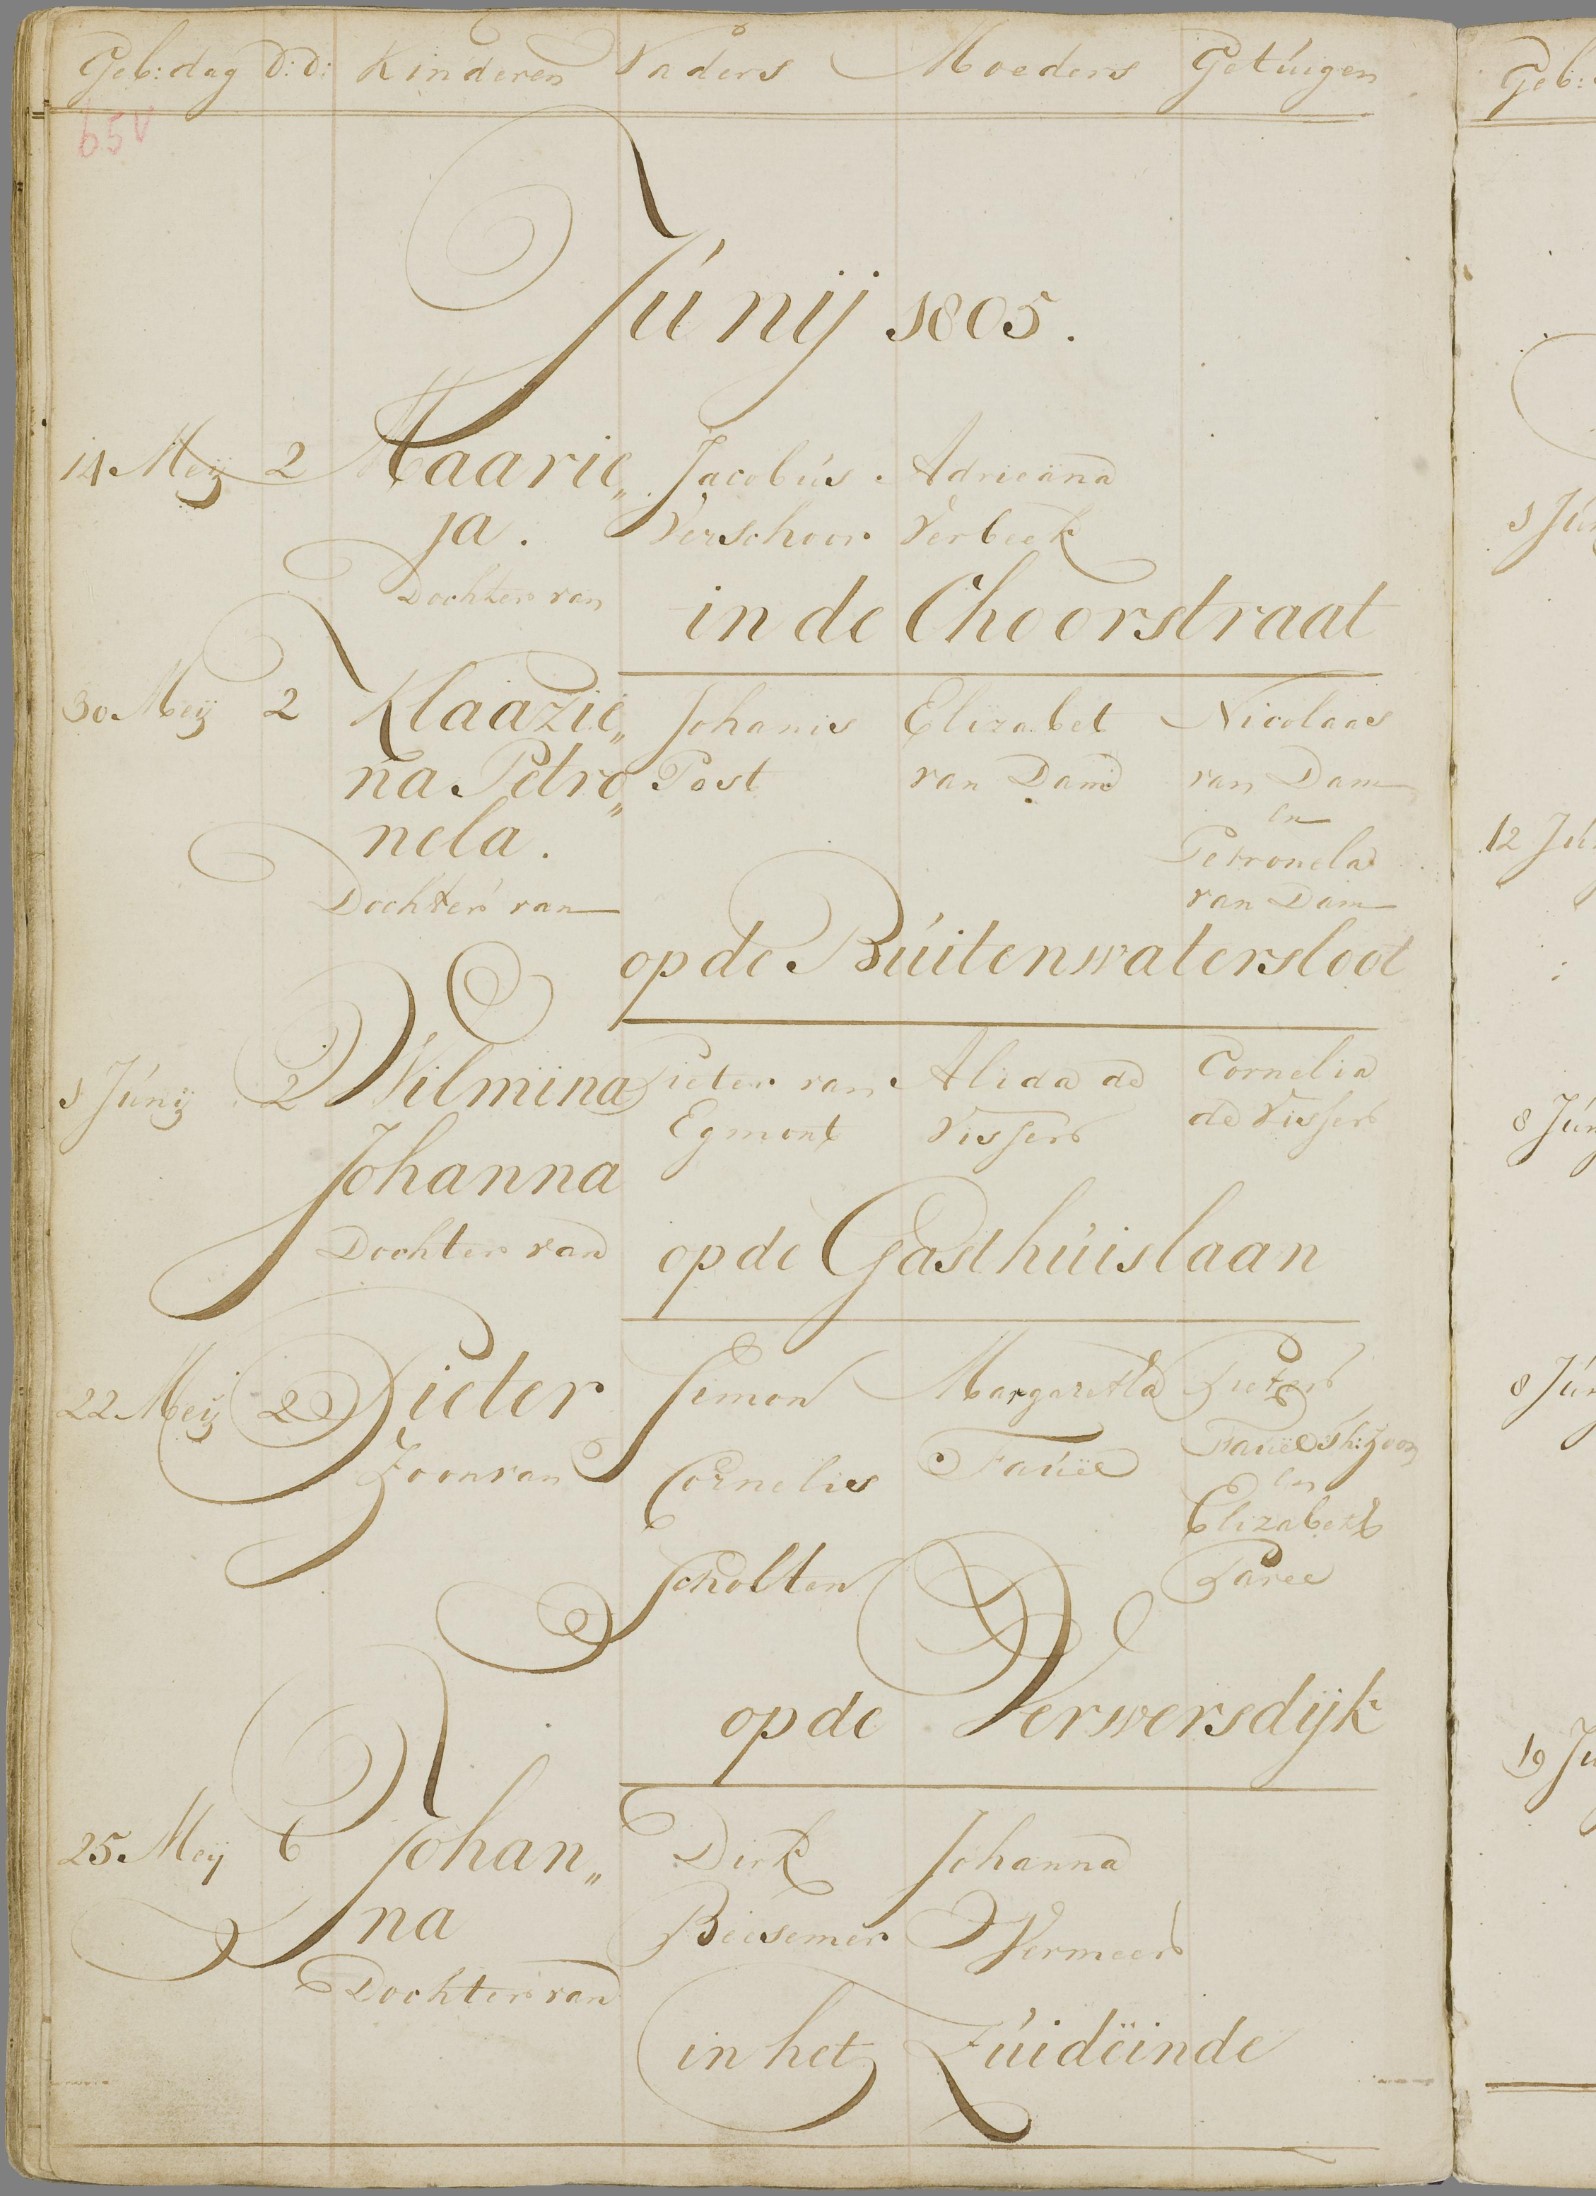 Geb: dag D: D: Kinderen Vaders Moeders Getúigen
65v
Júnij 1805.
14 Meij 2 Maarie„ Jacobús Adrieana
ja. Verschoor Verbeek
Dochter van
in de Choorstraat
30 Meij 2 Klaazie„ Johanis Elizabet Nicolaas
na Petro„ Post van Dam van Dam
en
nela. Petronela
Dochter van van Dam
op de Búitenwatersloot
1 Júnij 2 Wilmina Pieter van Alida de Cornelia
Johanna Egmont Visser de Visser
Dochter van op de Gasthúislaan
22 Meij 2 Pieter Simon Margaretha Pieter
Zoon van Cornelis Faúëe Faúëe Sh: Zoon
en
Elizabeth
Scholten Paree
op de Verwersdijk
25 Meij 6 Johan„ Dirk Johanna
na Beisemer Vermeer
Dochter van
in het Zúidëinde
Geb:
1 Jún
12 Jú
8 Jún
8 Jún
19 Jú